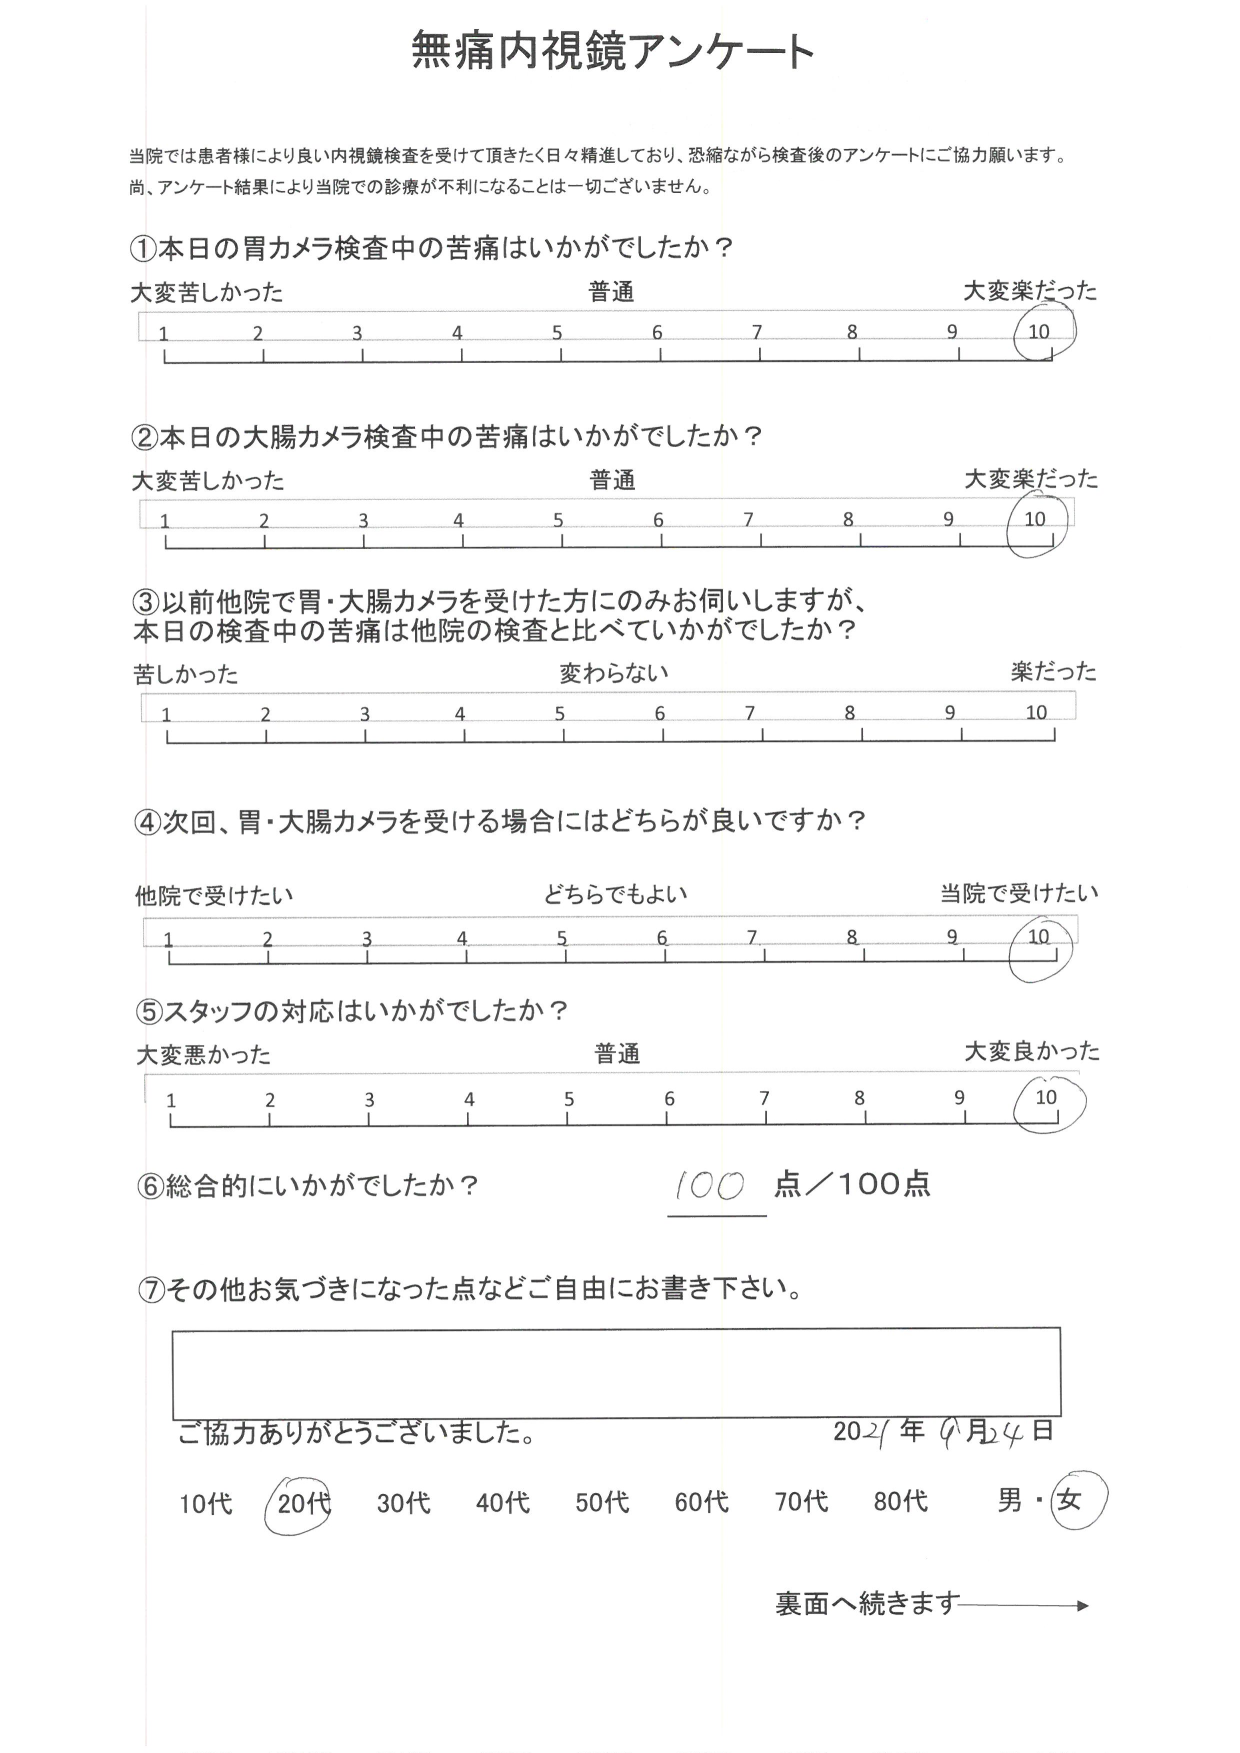 無痛内視鏡アンケート
当院では患者様により良い内視鏡検査を受けて頂きたく日々精進しており、恐縮ながら検査後のアンケートにご協力願います。
尚、アンケート結果により当院での診療が不利になることは一切ございません。
①本日の胃カメラ検査中の苦痛はいかがでしたか？
大変苦しかった 普通 大変楽だった
1 2 3 4 5 6 7 8 9 10
②本日の大腸カメラ検査中の苦痛はいかがでしたか？
大変苦しかった 普通 大変楽だった
1 2 3 4 5 6 7 8 9 10
③以前他院で胃・大腸カメラを受けた方にのみお伺いしますが、
本日の検査中の苦痛は他院の検査と比べていかがでしたか？
苦しかった 変わらない 楽だった
1 2 3 4 5 6 7 8 9 10
④次回、胃・大腸カメラを受ける場合にはどちらが良いですか？
他院で受けたい どちらでもよい 当院で受けたい
1 2 3 4 5 6 7 8 9 10
⑤スタッフの対応はいかがでしたか？
大変悪かった 普通 大変良かった
1 2 3 4 5 6 7 8 9 10
⑥総合的にいかがでしたか？ 100 点／100点
⑦その他お気づきになった点などご自由にお書き下さい。
ご協力ありがとうございました。 2021年 9月24日
10代 20代 30代 40代 50代 60代 70代 80代 男・女
裏面へ続きます